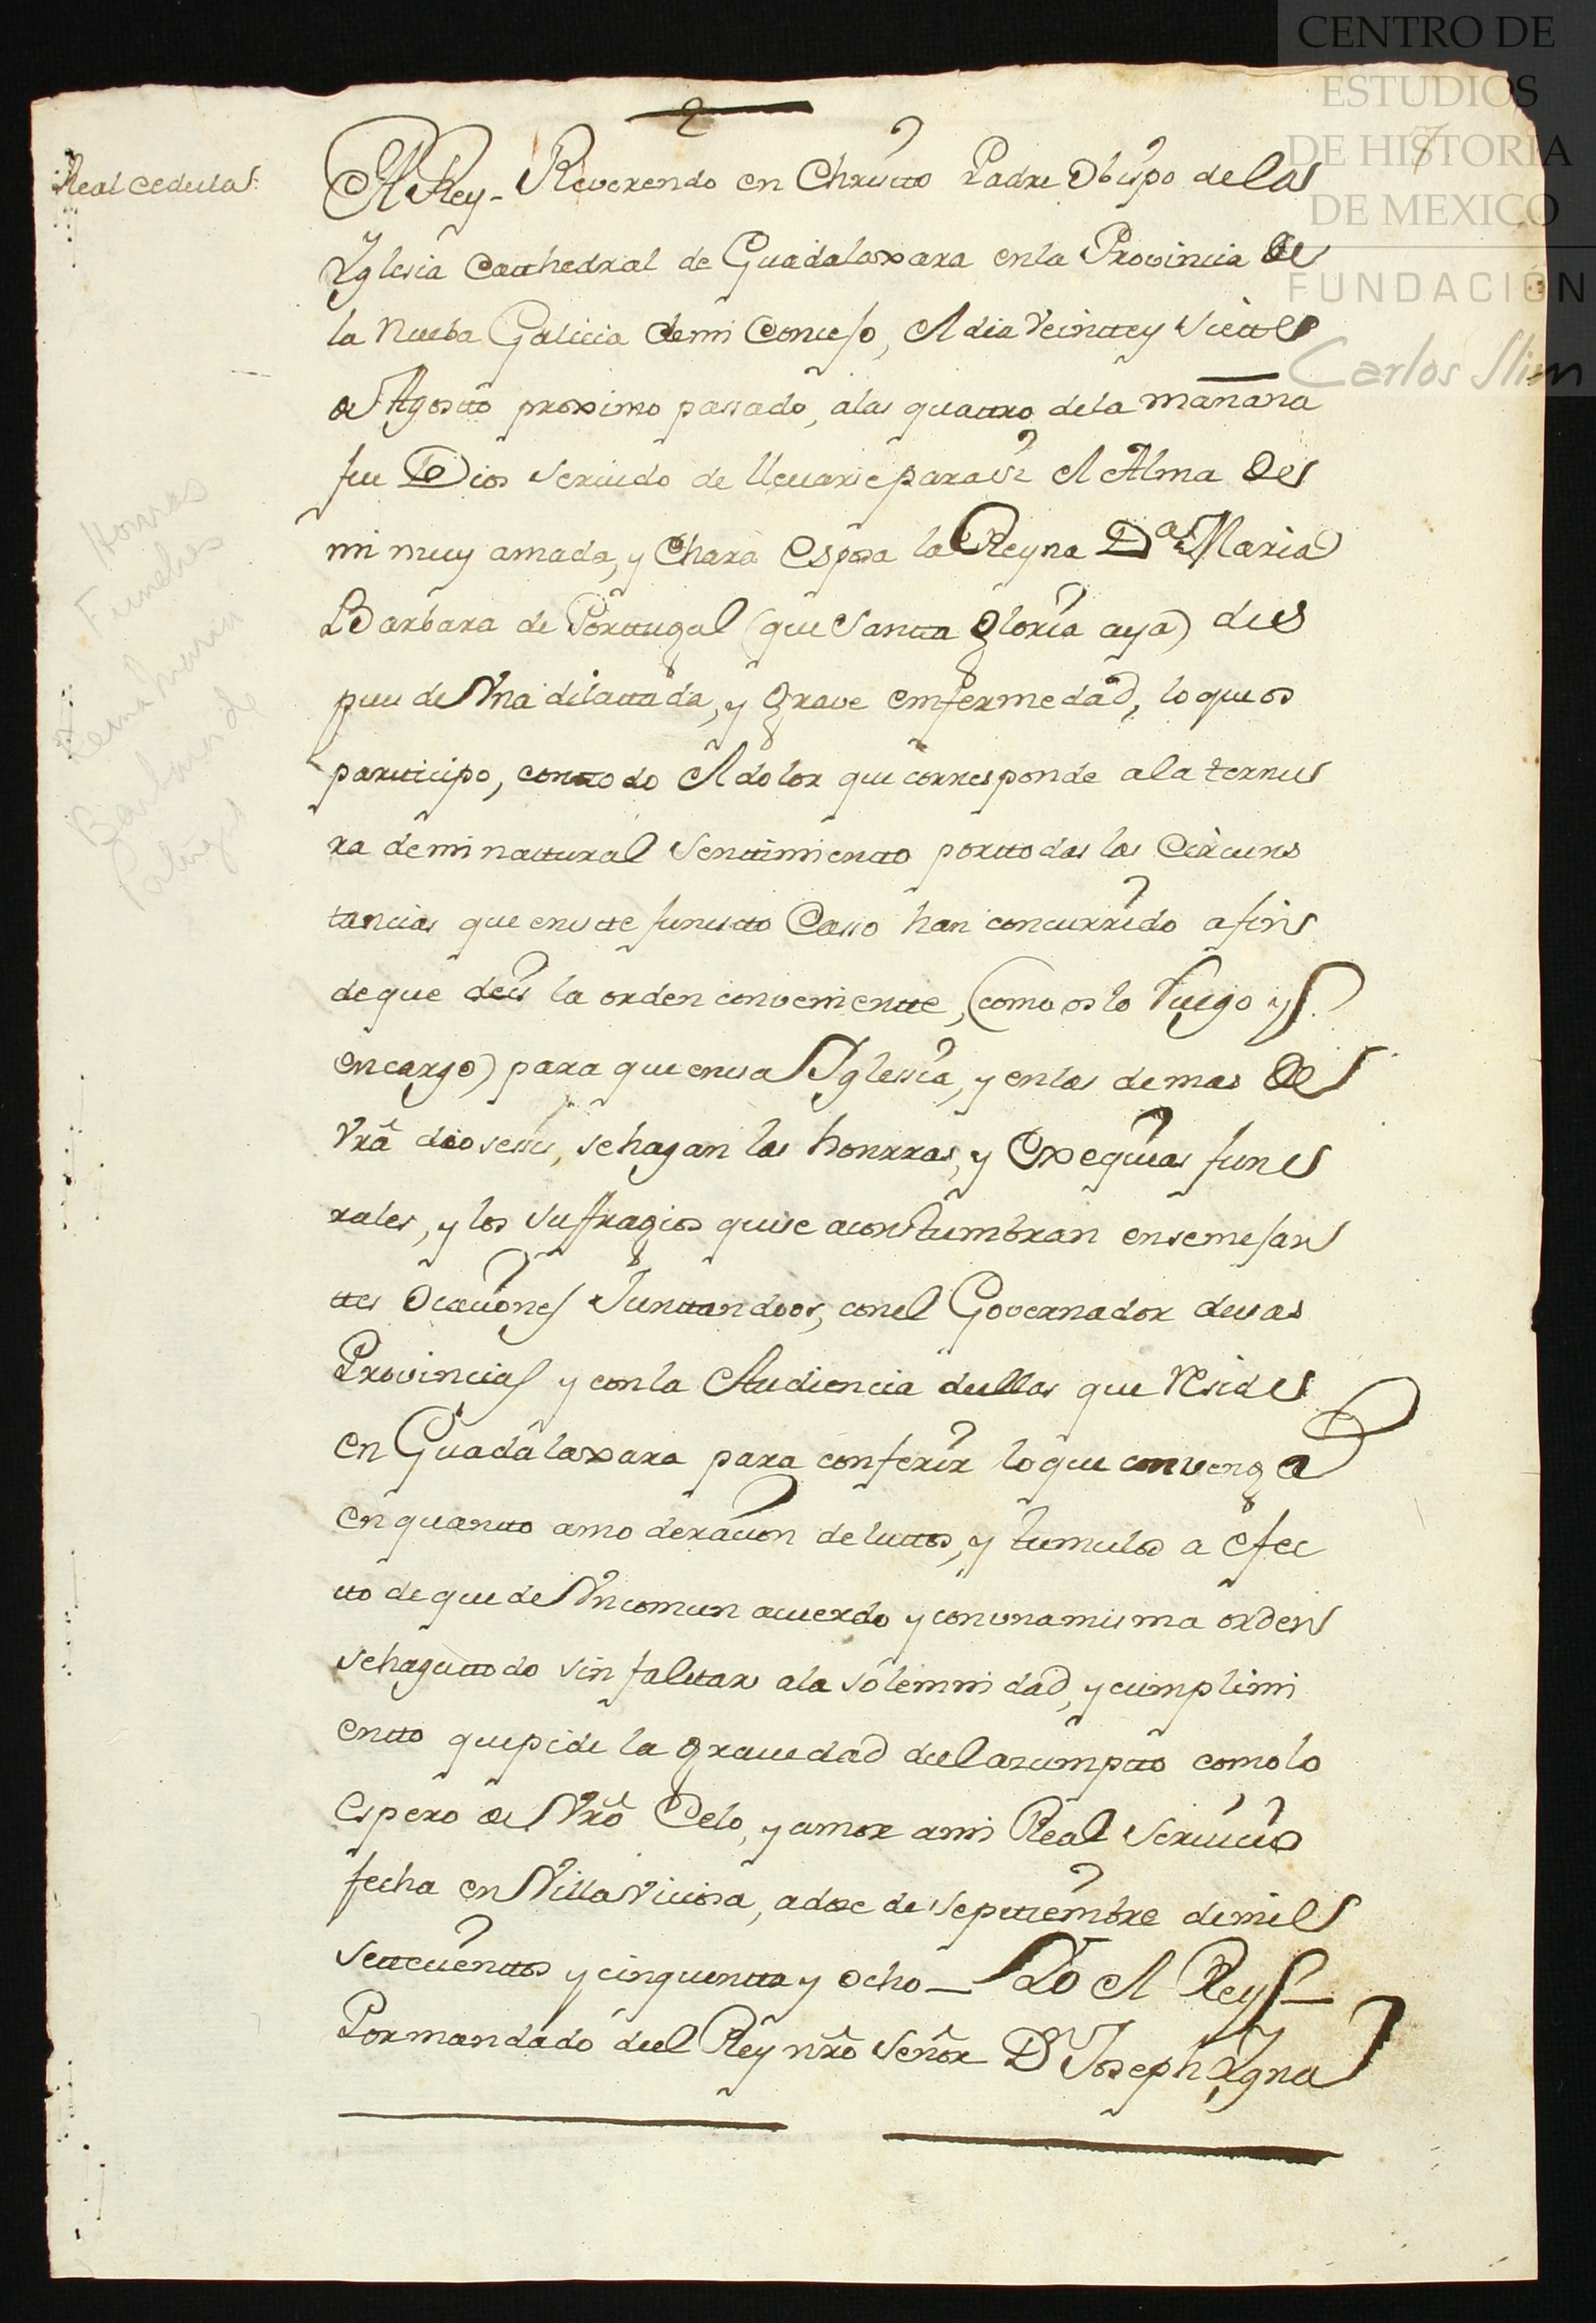 CENTRO DE
ESTUDIOS
DE HISTORIA
DE MEXICO
FUNDACIÓN
Carlos Slim
7
Real cedula
El Rey- Reverendo en Christto Padre Obispo de la
Yglesia Catthedral de Guadalaxara en la Provincia de
la Nueba Galicia de mi Consejo, El dia Veintte y Siette
de Agostto proximo passado, a las quattro de la mañana
fue Dios servido de llevarse para si El Alma de
mi muy amada, y Chara Esposa la Reyna Dª Maria
Barbara de Porttugal (que Santta Gloria aya) des
pues de Una dilattada, y grave emfermedad, lo que os
partticipo, con ttodo El dolor que corresponde a la ternu
ra de mi nattural Senttimientto por ttodas las Circuns
tancias que en estte funestto Casso han concurrido a fin
de que deis la orden convenientte, (como os lo Ruego y
encargo) para que en esa Yglesia, y en las demas de
Vrâ diosesis, se hagan las honrras, y Exequias fune
rales, y los suffragios que se acostumbran en semejan
ttes Ocasiones Junttandoos, con el Governador de esas
Provincias y con la Audiencia de ellas que Reside
en Guadalaxara para conferir lo que convenga
en quantto a moderacion de luttos, y tumulos a efec
tto de que de Un comun acuerdo y con una misma orden
se haga ttodo sin falttar a la solemnidad, y cumplimi
entto que pide la gravedad del asumptto como lo
espero de Vrô Celo, y amor a mi Real Servicio
fecha en Villa Viciosa, a doze de Septtiembre de mil
settecienttos y cinquentta y ocho- Yo El Rey-
Por mandado del Rey nrô Señor Dn Joseph Ygna
Honras
Funebres
Reina Maria
Barbara de
Portugal